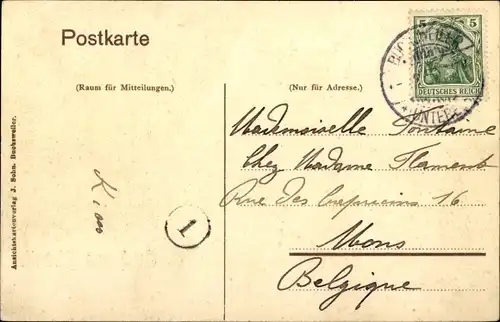 Postkarte
(Raum für Mitteilungen.)
(Nur für Adresse.)
5 5
DEUTSCHES REICH
Mademoiselle Fontaine
Chez Madame Flament
Rue des Capucins 16
Mons
Belgique
1
Ansichtskartenverlag J. Sohn, Buchsweiler.